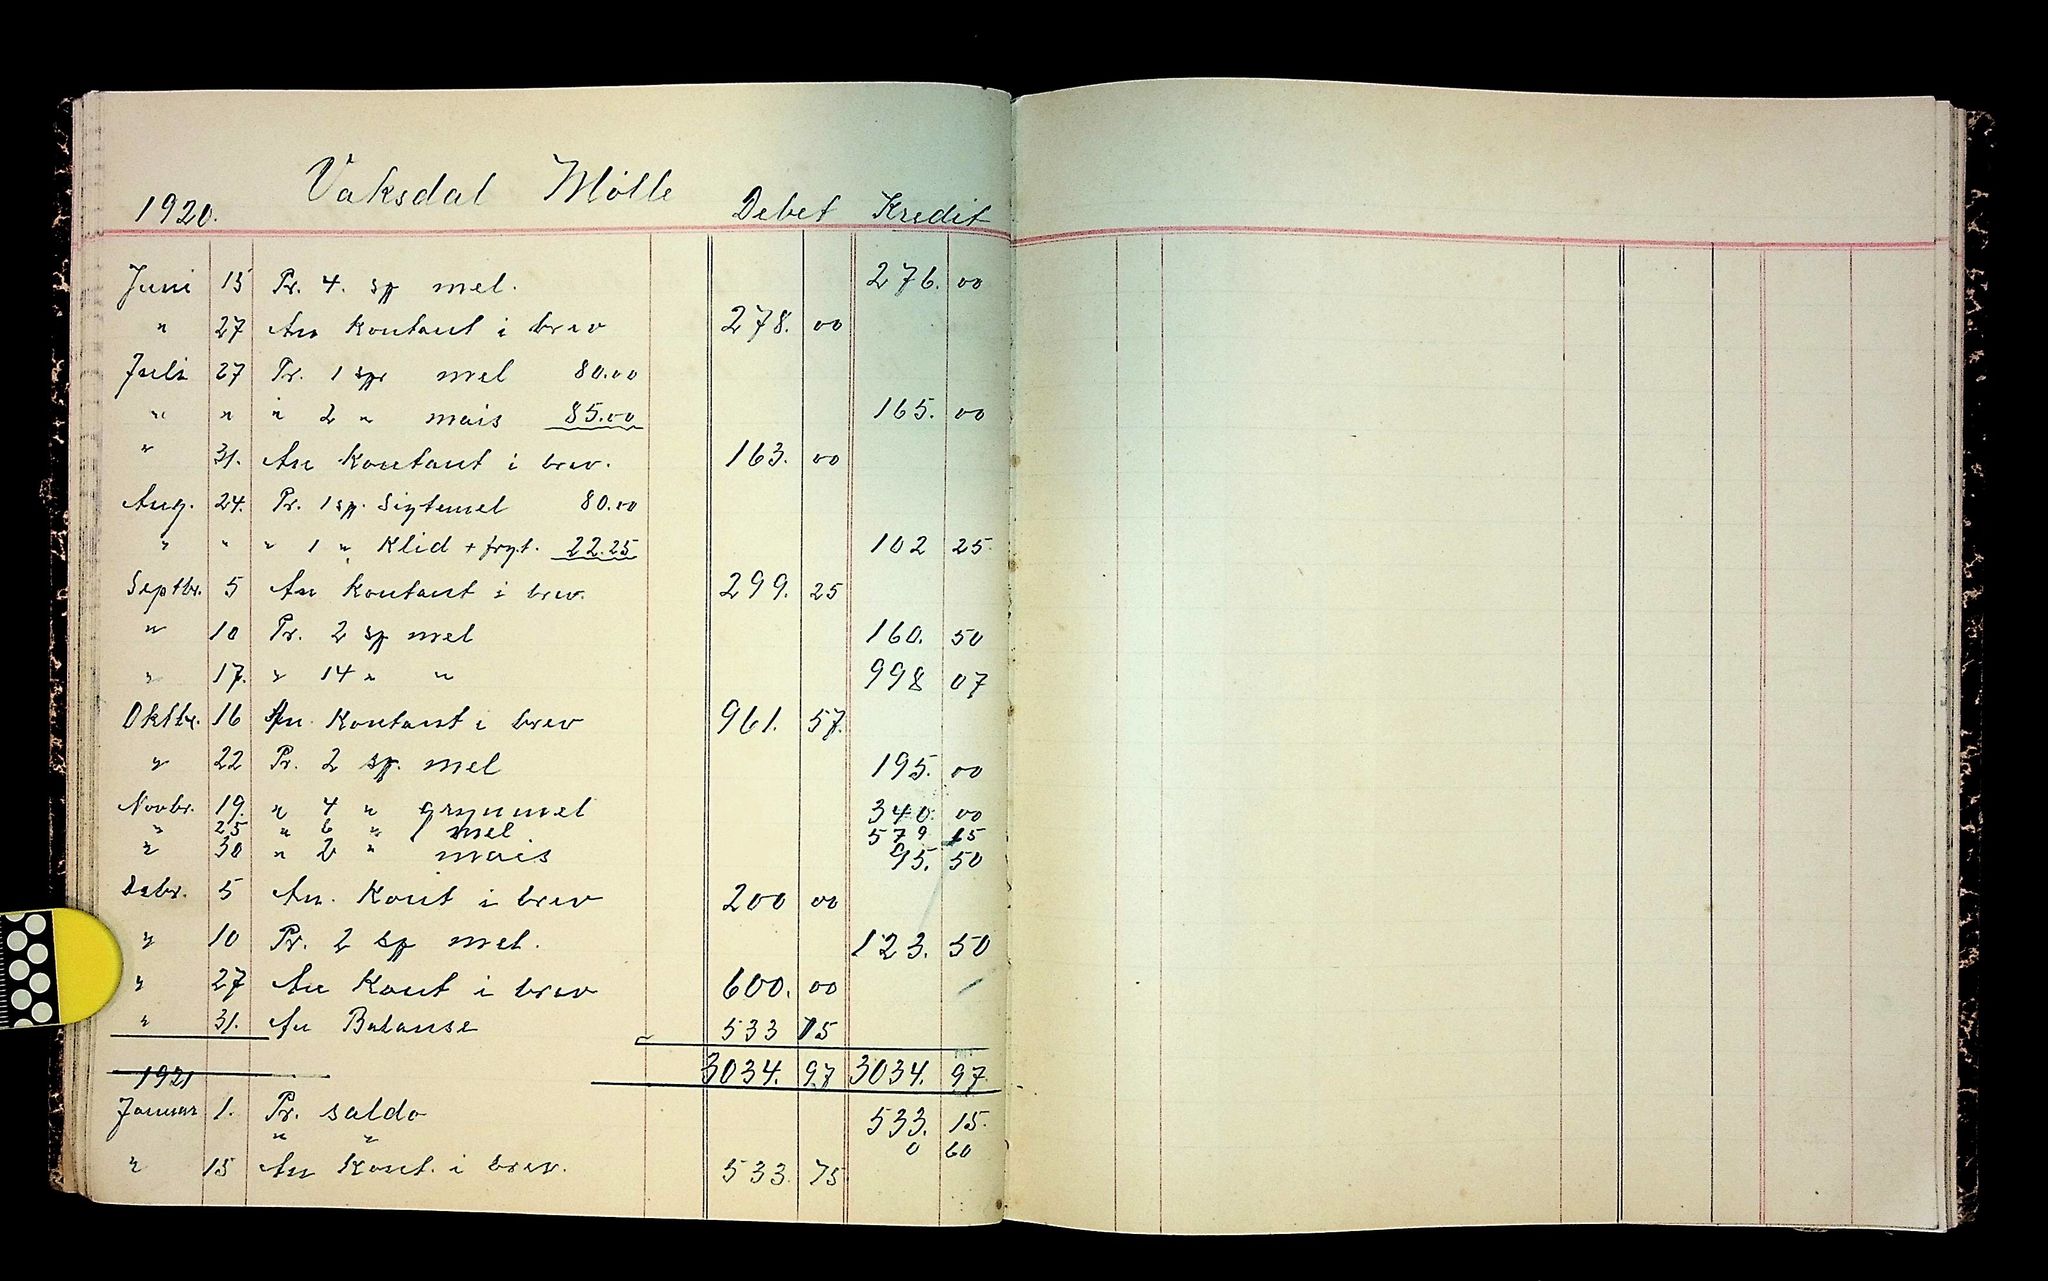 Vaksdal Mølle
1920. Debet Kredit
Juni 15 Pr. 4. sp mel. 276. 00
" 27 An Kontant i brev 278. 00
Juli 27 Pr. 1 sp mel 80.00
" " " 2 " mais 85.00 165. 00
" 31. An Kontant i brev. 163. 00
Aug. 24. Pr. 1 sp. Sigtemel 80.00
" " " 1 " Klid + frgt. 22.25 102 25
Septbr. 5 An Kontant i brev. 299. 25
" 10 Pr. 2 sp mel 160. 50
" 17. " 14 " " 998 07
Oktbr. 16 An Kontant i brev 961. 57.
" 22 Pr. 2 sp. mel 195. 00
Novbr. 19. " 4 " grynmel 340. 00
" 25 " 6 " mel 579 15
" 30 " 2 " mais 95. 50
Desbr. 5 An. Kont i brev 200 00
" 10 Pr. 2 sp mel. 123. 50
" 27 An Kont i brev 600. 00
" 31. An Balanse 533 15
3034. 97 3034. 97
1921
Januar 1. Pr. saldo 533. 15.
" " 0 60
" 15 An Kont. i brev. 533. 75